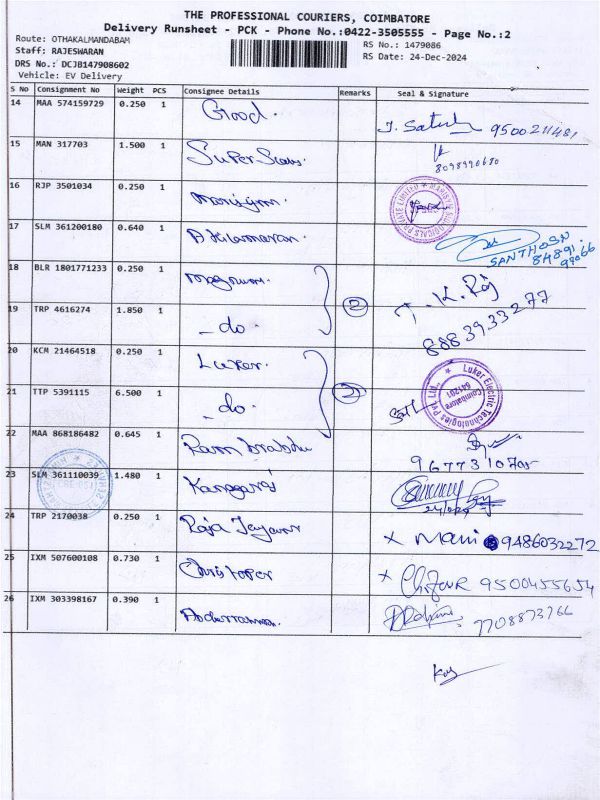 THE PROFESSIONAL COURIERS, COIMBATORE
Delivery Runsheet - PCK - Phone No.:0422-3505555 - Page No.:2
Route: OTHAKALMANDABAM
RS No.: 1479086
Staff: RAJESWARAN
RS Date: 24-Dec-2024
DRS No.: DCJB147908602
Vehicle: EV Delivery
S No Consignment No Weight PCS Consignee Details Remarks Seal & Signature
14 MAA 574159729 0.250 1 Good. 9500211481
15 MAN 317703 1.500 1
16 RJP 3501034 0.250 1
17 SLM 361200180 0.640 1 Akilamaran. SANTHOSH
18 BLR 1801771233 0.250 1 Magnum. 2 T. K. Raj
19 TRP 4616274 1.850 1 -do. 8883933277
20 KCM 21464518 0.250 1 Luker. Luker Electric Technologies Pvt. Ltd., Coimbatore 641201
21 TTP 5391115 6.500 1 -do.
22 MAA 868186482 0.645 1 Ram prabhu
23 SLM 361110039 1.480 1
24 TRP 2170038 0.250 1 Raja x Mani 9486032272
25 IXM 507600108 0.730 1 Christoper x 9500455654
26 IXM 303398167 0.390 1 7708873766